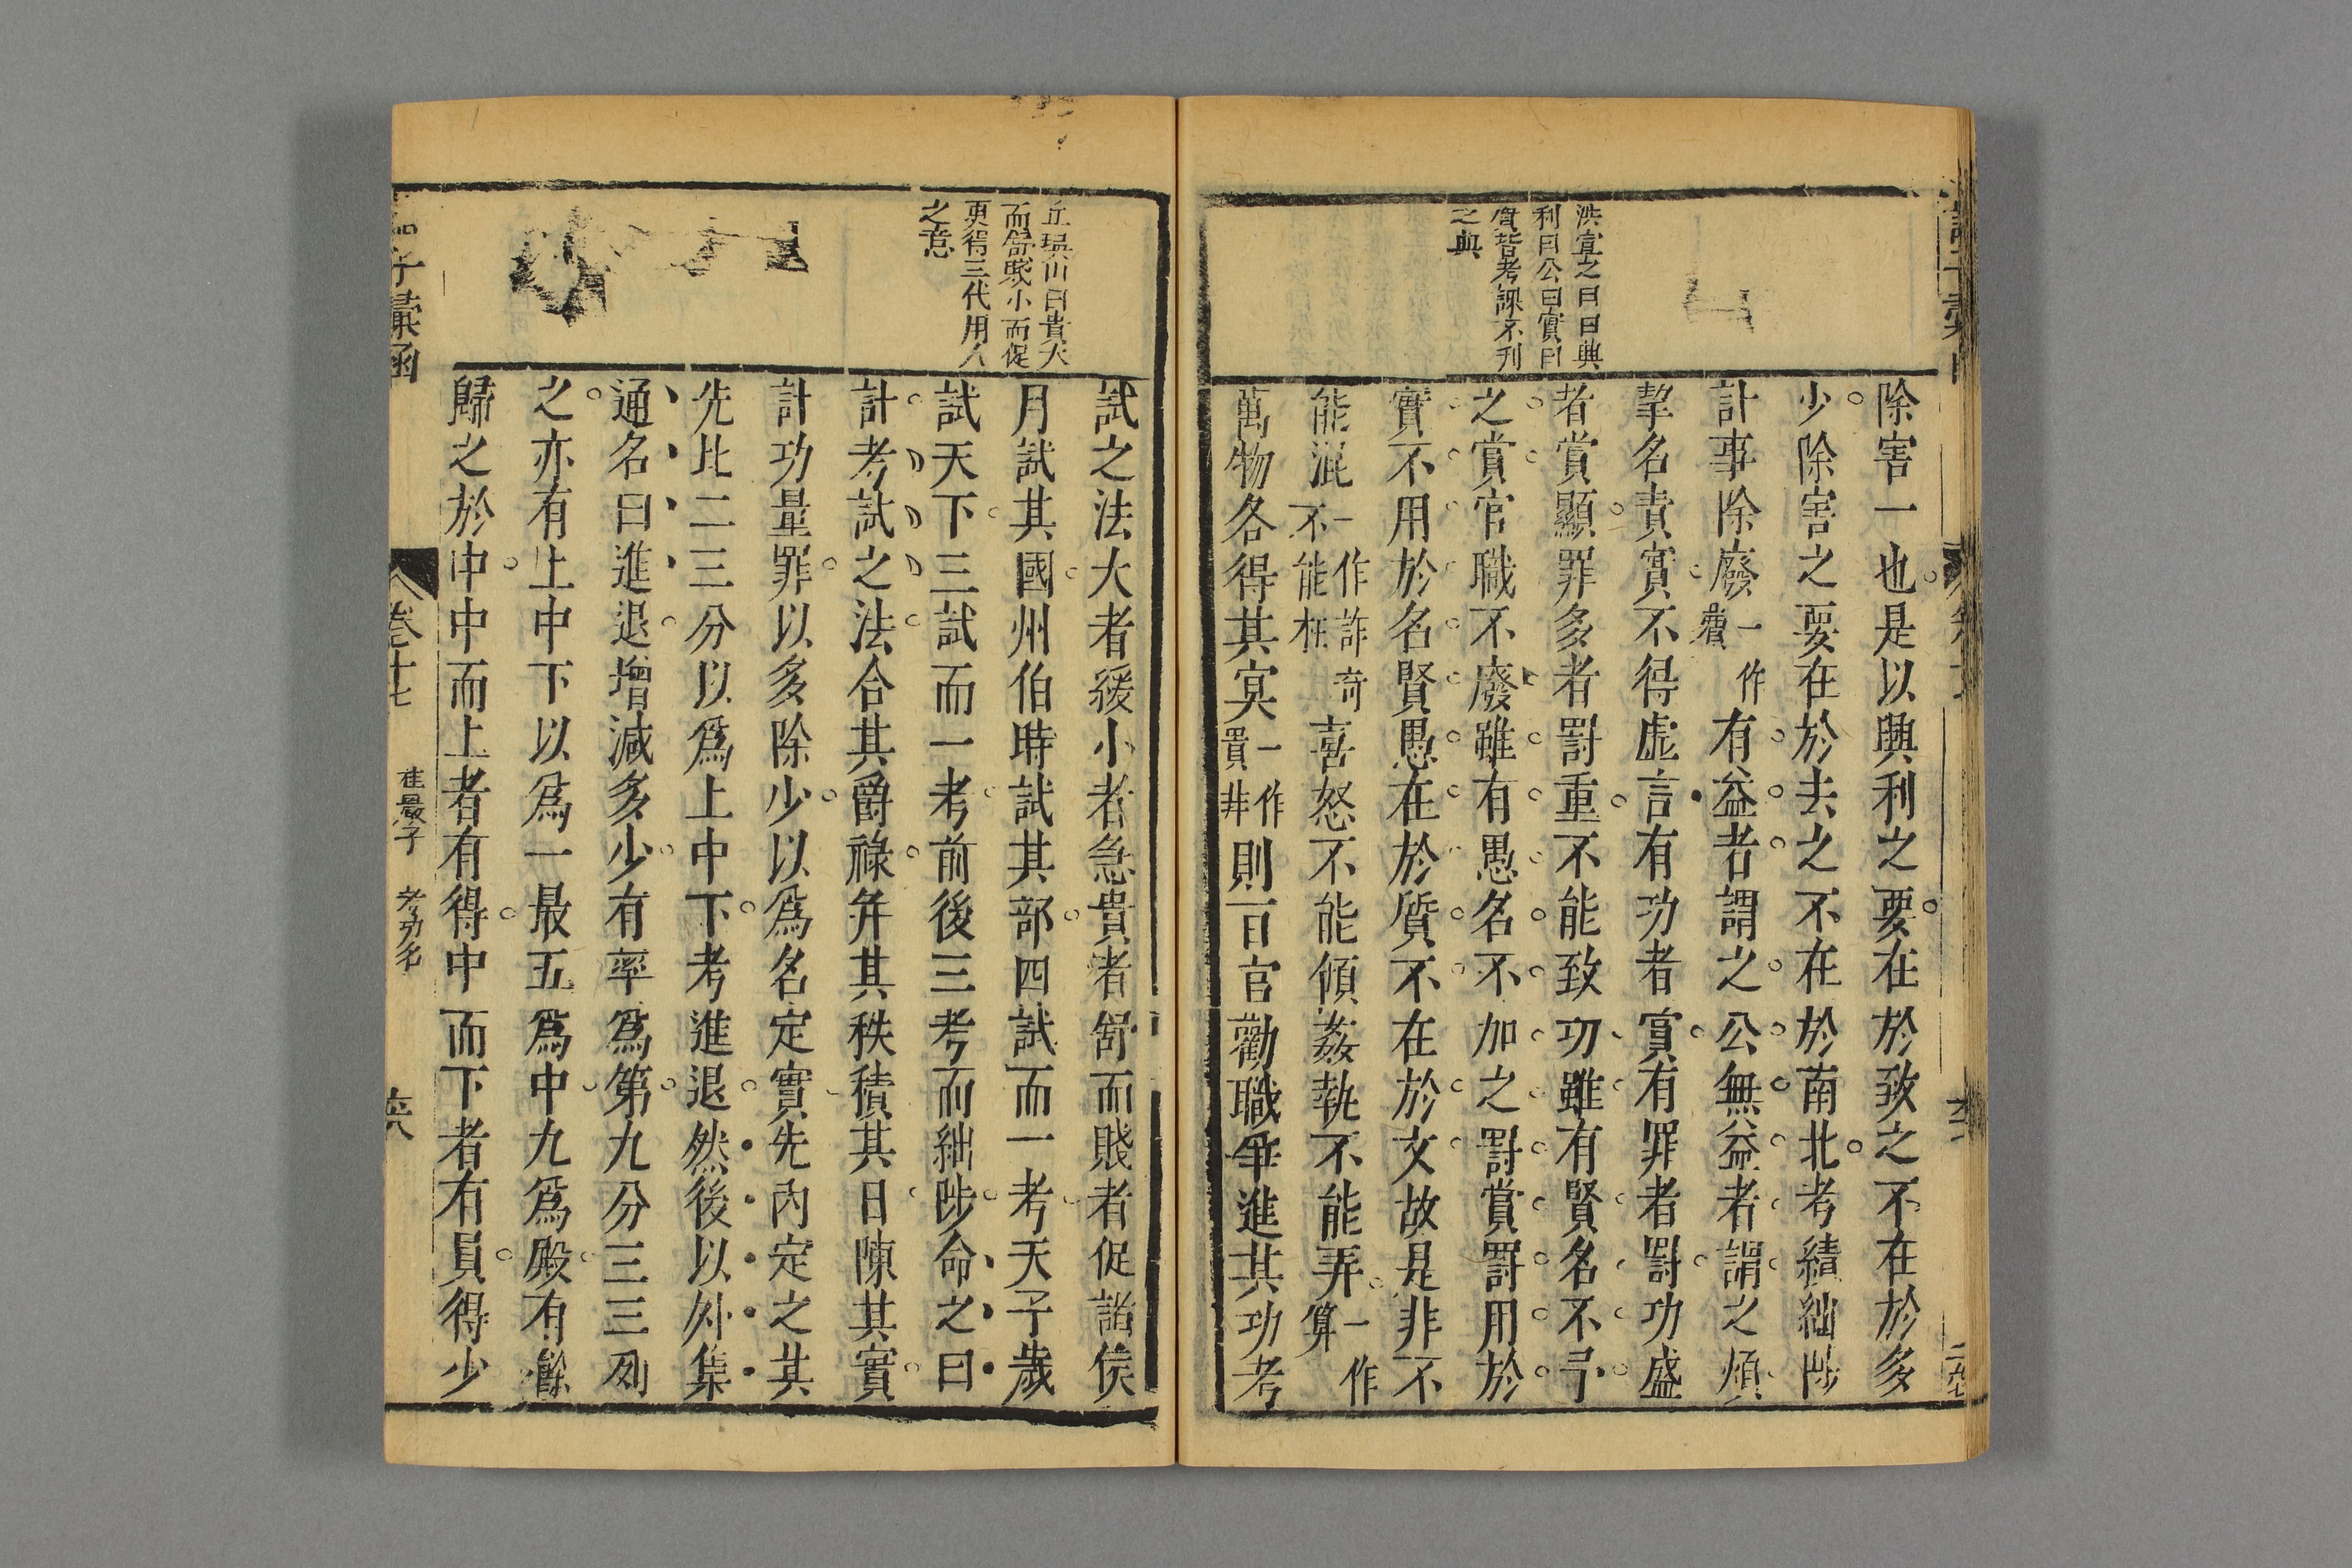 洪宜之曰曰典
利曰公曰實曰
實皆考課不刋
之典
除害一也是以興利之要在於致之不在於多
少除害之要在於去之不在於南北考績絀陟
計事除廢一作有益者謂之公無益者謂之煩
挈名責實不得虛言有功者賞有罪者罸功盛
者賞顯罪多者罸重不能致功雖有賢名不予
之賞官職不廢雖有愚名不加之罸賞罸用於
實不用於名賢愚在於質不在於文故是非不
能混一作詐奇不能枉喜怒不能傾姦執不能弄一作算
萬物各得其㝠一作則百官勸職爭進其功考
丘瓊山曰貴大
而舒賤小而促
更得三代用人
之意
試之法大者緩小者急貴者舒而賤者促諸侯
月試其國州伯時試其部四試而一考天子歲
試天下三試而一考前後三考而絀陟命之曰
計考試之法合其爵祿并其秩積其日陳其實
計功量罪以多除少以爲名定實先內定之其
先比二三分以爲上中下考進退然後以外集
通名曰進退增減多少有率爲第九分三三列
之亦有上中下以爲一最五爲中九爲殿有餘
歸之於中中而上者有得中而下者有員得少
子彙函
卷十七
桂巖子
考功名